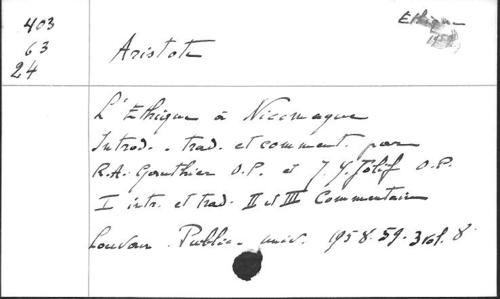 403
63
24
Ethique
Aristote
L'Ethique à Nicomaque
Introd. . trad. et comment. par
R.A. Gauthier O.P. et J. Y. Jolif O.P.
I intr. et trad. II et III Commentaire
Louvain . Public. univ. 1958-59. 3 vol. 8°